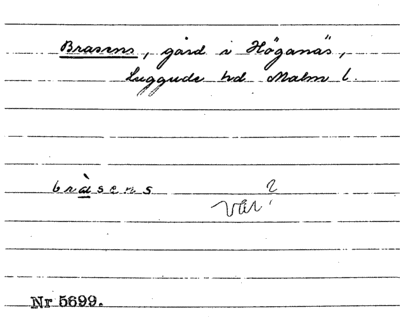 Brasens, gård i Höganäs,
Luggude hd Malm l.
bràsens
var?
Nr 5699.